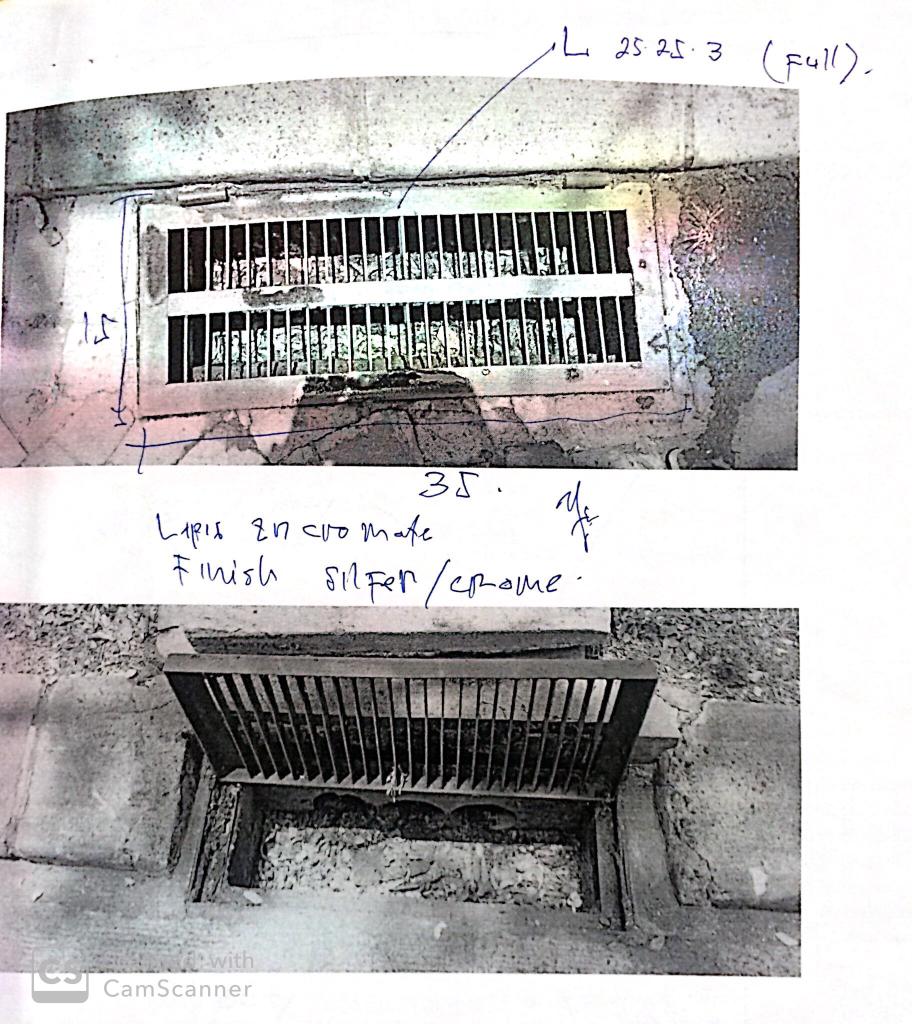 L 25.25.3 (Full).
15
35.
Lapis zn cromate
Finish silfer/crome.
CS Scanned with
CamScanner